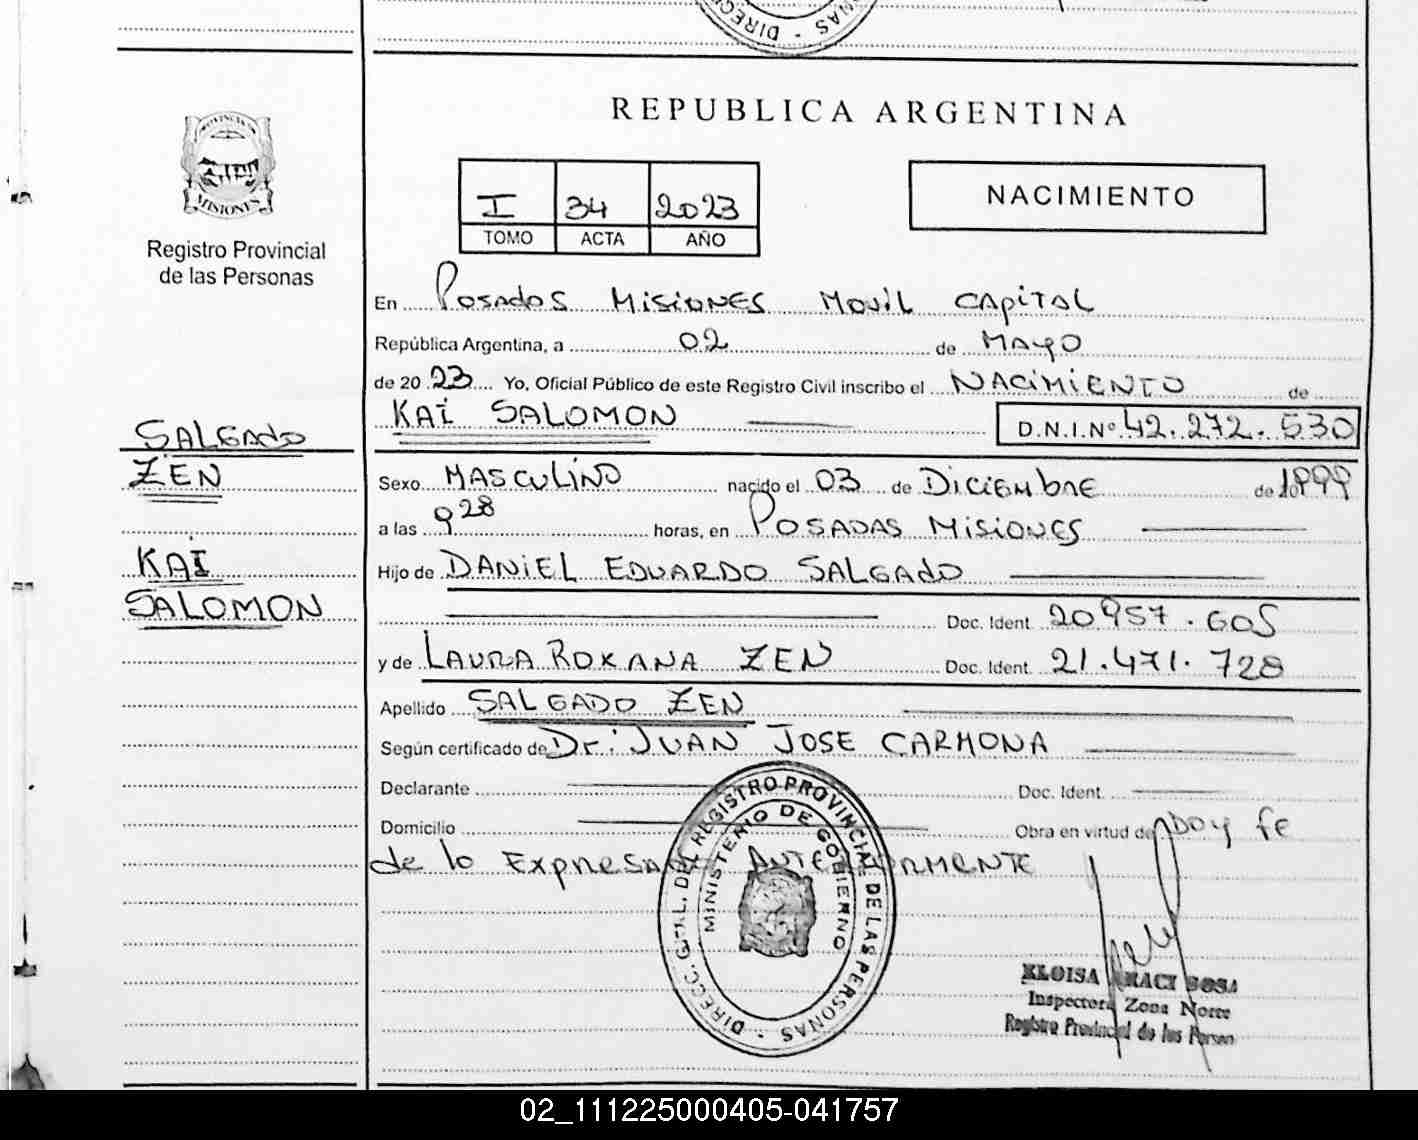 DIRECC
NAS
REPUBLICA ARGENTINA
PROVINCIA
MISIONES
Registro Provincial
de las Personas
I 34 2023
TOMO ACTA AÑO
NACIMIENTO
En Posadas Misiones Movil Capital
República Argentina, a 02 de Mayo
de 2023 Yo, Oficial Público de este Registro Civil inscribo el NACIMIENTO de
KAI SALOMON D.N.I.Nº 42.272.530
SALGADO
ZEN
KAI
SALOMON
Sexo MASCULINO nacido el 03 de Diciembre de 1999
a las 9 28 horas, en POSADAS Misiones
Hijo de DANIEL EDUARDO SALGADO
Doc. Ident. 20957.605
y de LAURA ROXANA ZEN Doc. Ident. 21.471.728
Apellido SALGADO ZEN
Según certificado de Dr. JUAN JOSE CARMONA
Declarante Doc. Ident.
Domicilio Obra en virtud de Doy fe
de lo Expresado ANTERIORMENTE
DIRECC. GRAL. DEL REGISTRO PROVINCIAL DE LAS PERSONAS
MINISTERIO DE GOBIERNO
ELOISA ARACI SOSA
Inspectora Zona Norte
Registro Provincial de las Person
02_111225000405-041757